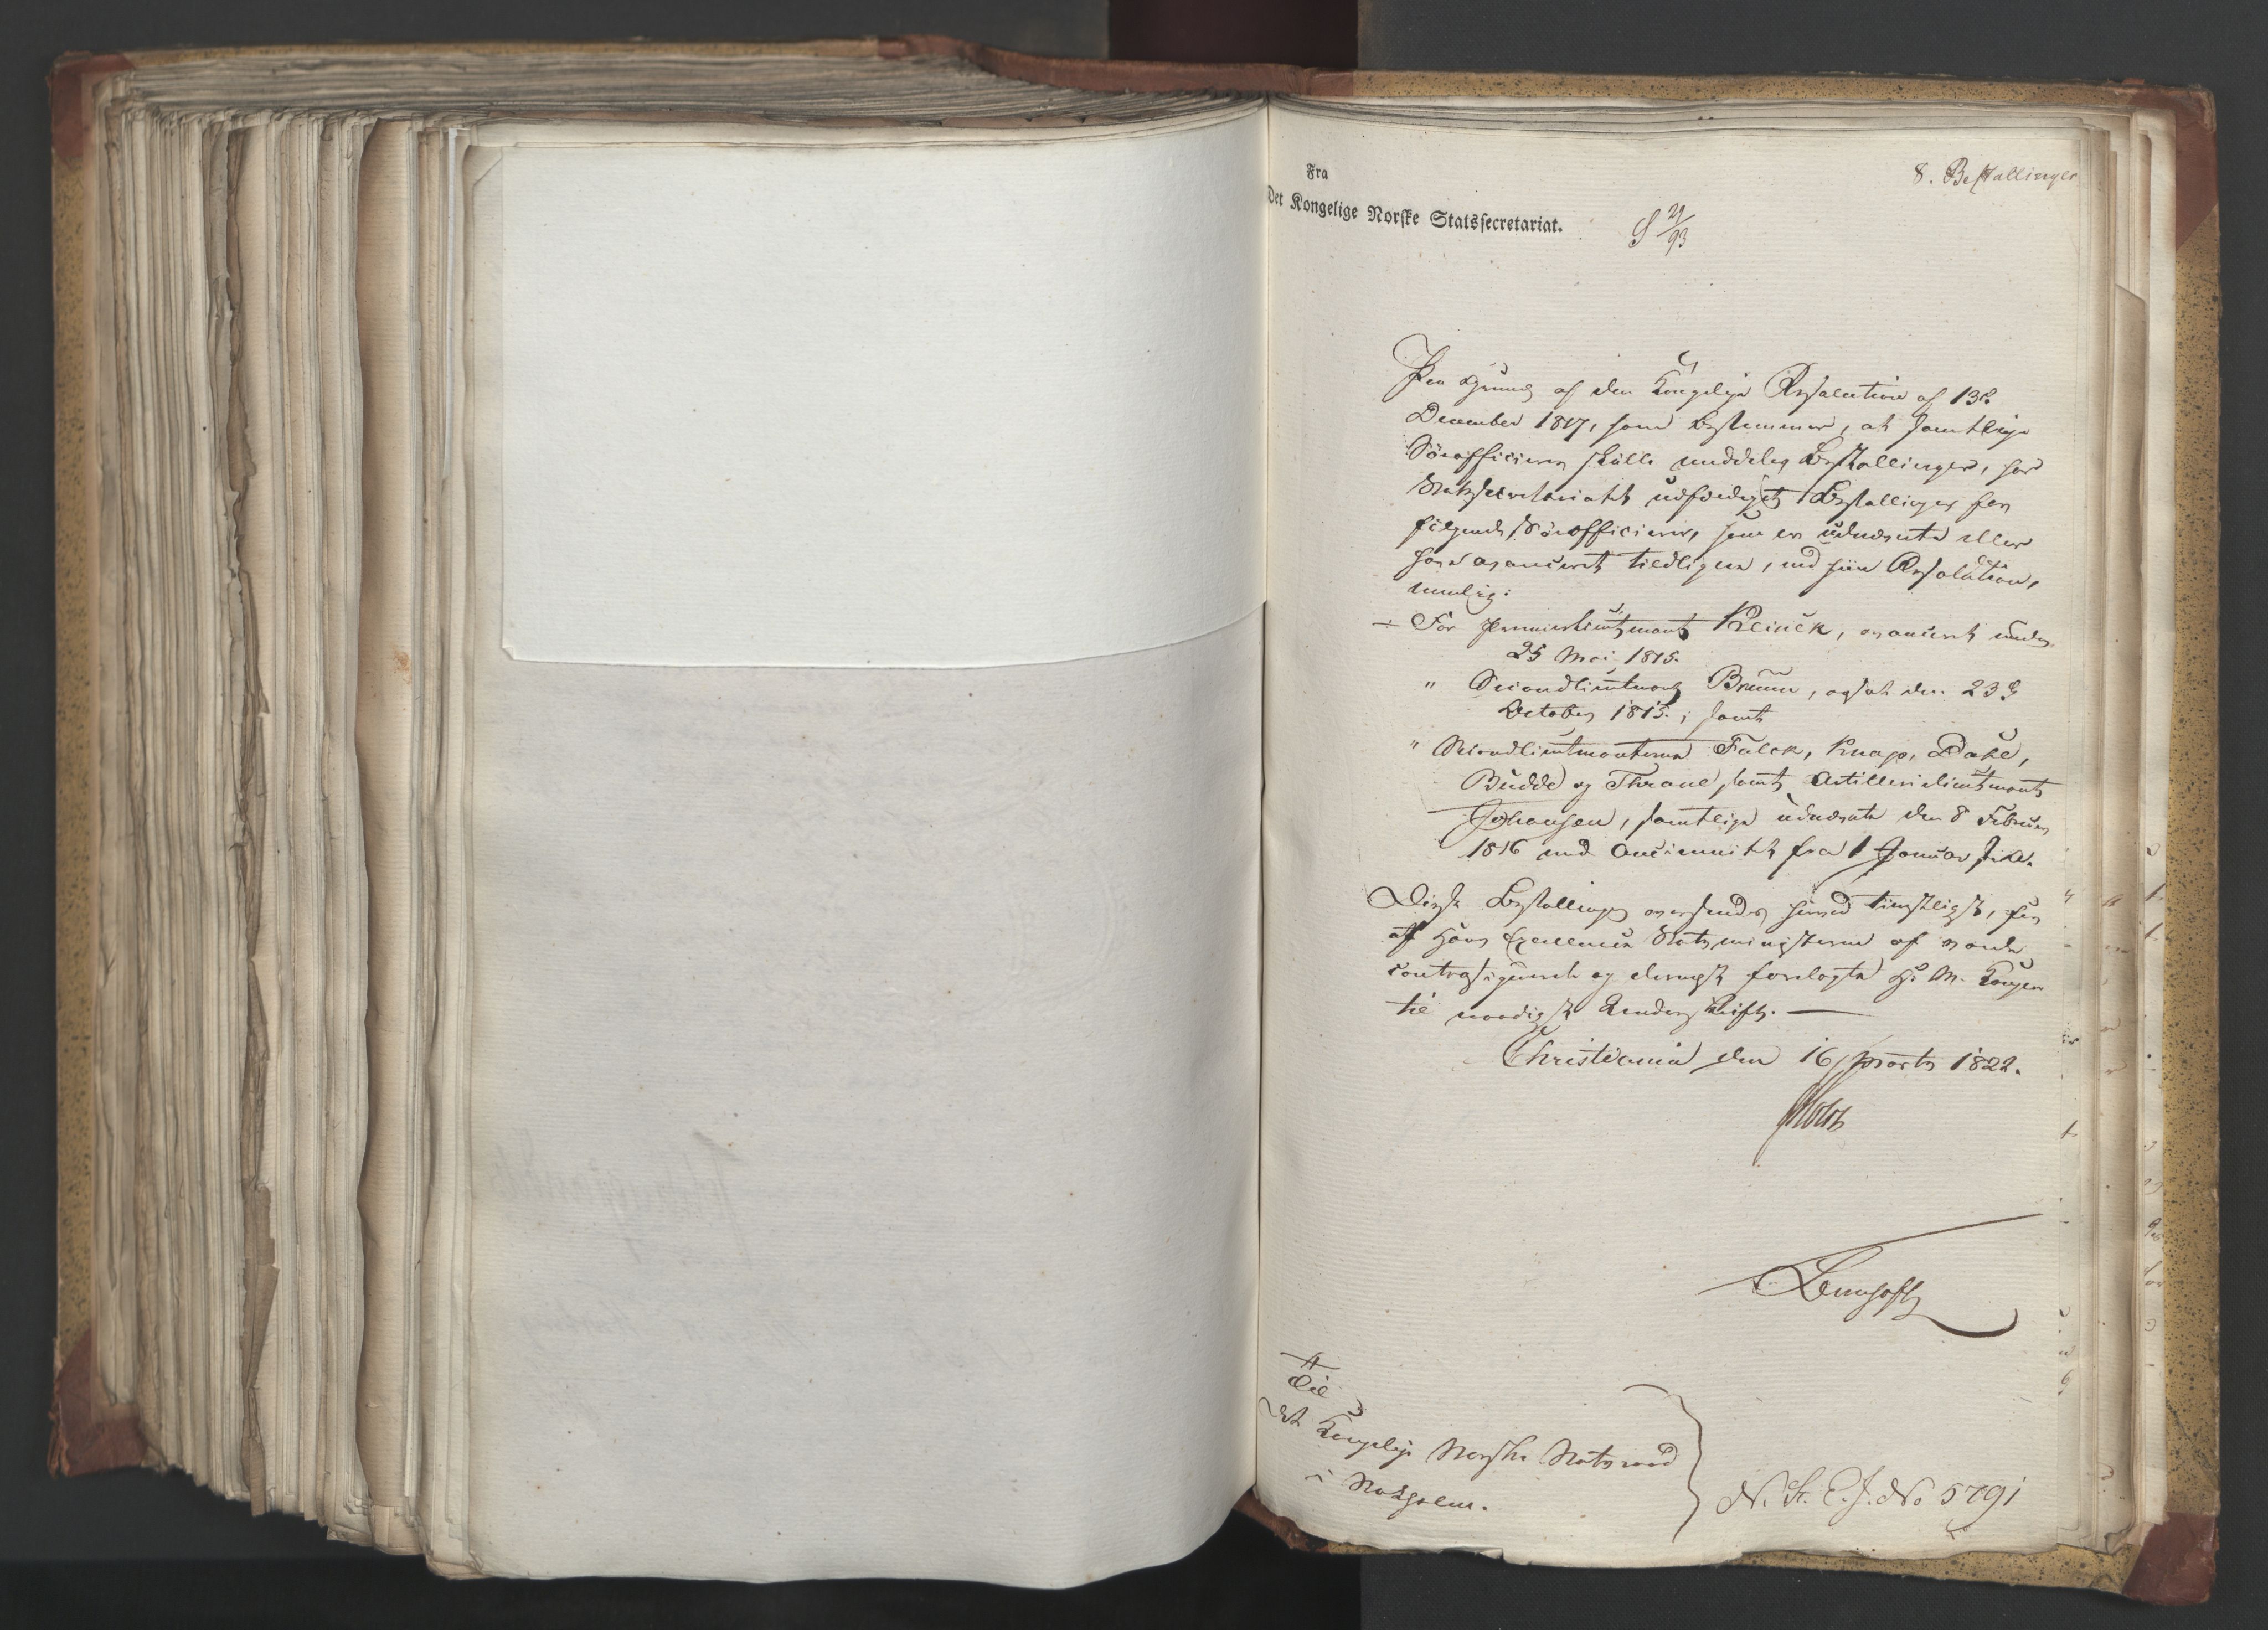 Fra
Det Kongelige Norske Statssecretariat.
8. Bestallinger
S 29/93
Paa Grund af den Kongelige Resolution af 13de
December 1817, som bestemmer, at samtlige
Söeofficierer skulle meddeles Bestallinger, har
Statssecretariatet udfærdiget Bestallinger for
følgende Söeofficierer, som ere udnævnte eller
have avanceret tiedligere, end siin Resolution,
nemlig:
For Premierlieutenant Kleinck, avanceret under
25 Mai 1815.
" Secondlieutenant Bruun, ansat den 23de
October 1815.; samt
" Secondlieutenanterne Falck, Knap, Dahl,
Budde og Thrane samt Artillerielieutenant
Johansen, samtlige udnævnte den 8 Februar
1816 med Anciennitet fra 1 Januar s. A.
Disse Bestallinger oversendes hermed tienstligst, for
at Hans Excellence Statsministeren af vorde
contrasignerede og dernæst forelagte H. M. Kongen
til naadigst Underskrift. —
Christiania den 16 Marts 1822.
Holst
Til
Det Kongelige Norske Statsraad
i Stokholm.
N. St. E. J. No 5791